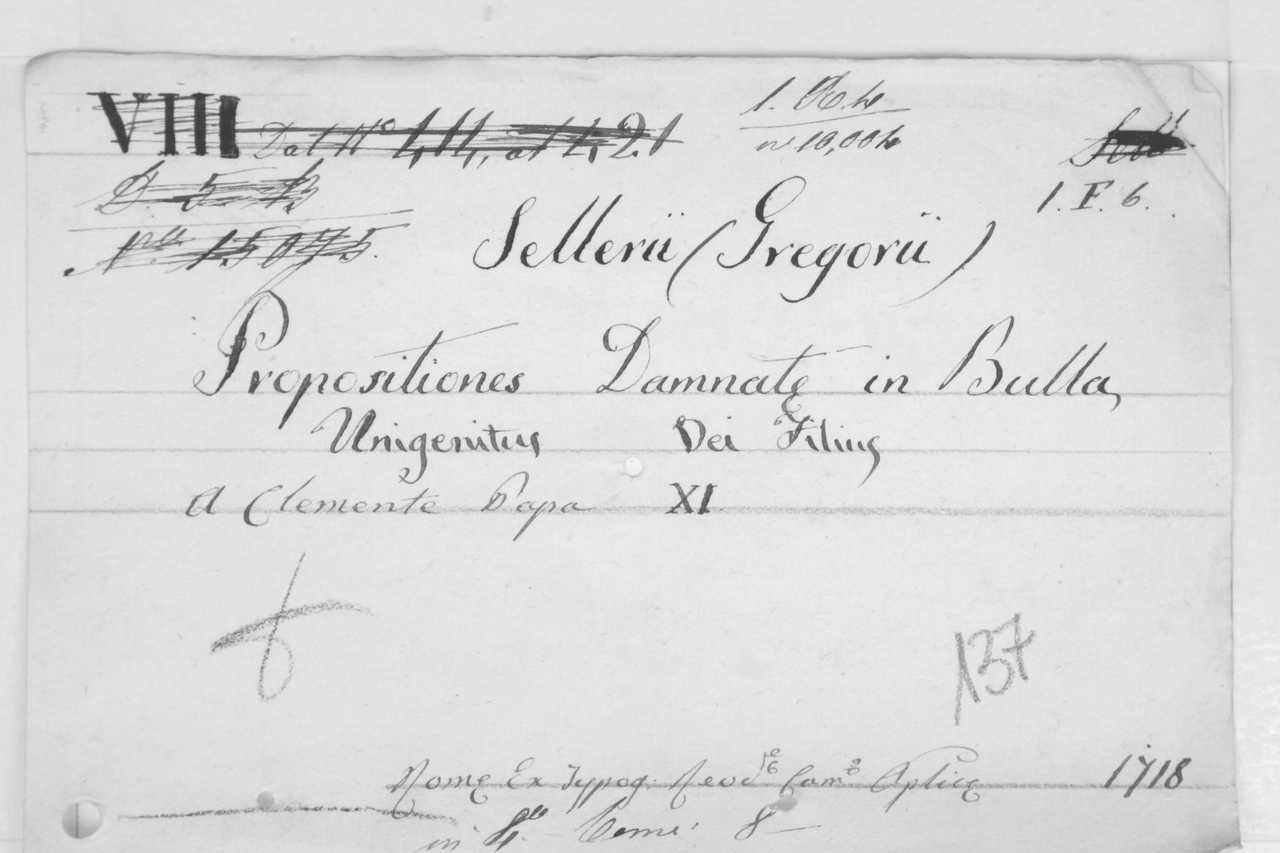 VIII Dal Nº 414, at 421
D. 5. B
Nº 15075.
in 10,00b
1. F. 6.
Sellerii (Gregorii)
Propositiones Damnatę in Bulla,
Unigenitus Dei Filius
A Clemente Papa XI
6
137
Romę Ex Typog: Revdę Camę Aplicę 1718
in 4º Tomi: 8